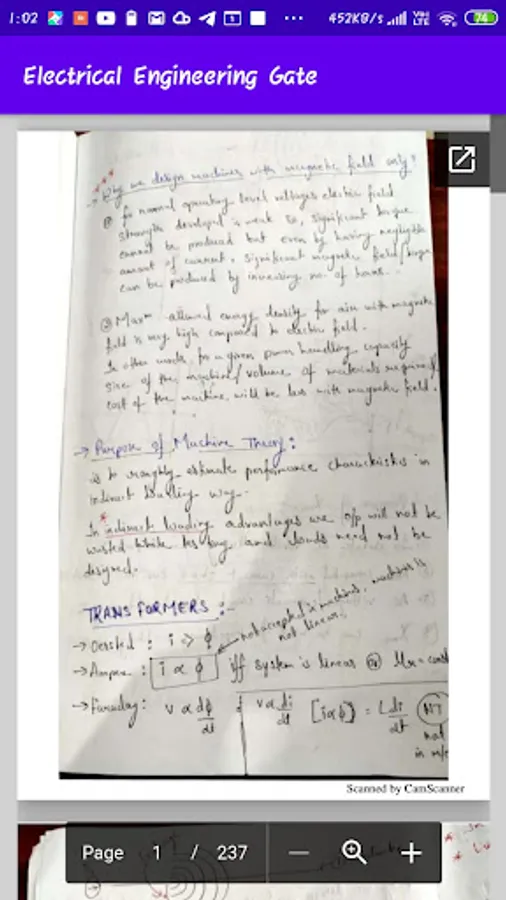 1:02 452KB/s 74
Electrical Engineering Gate
→ Why we design machines with magnetic field only?
① for normal operating level voltages electric field
strength developed is weak so, significant torque
cannot be produced but even by having negligible
amount of current, significant magnetic field/torque
can be produced by increasing no. of turns.
② Maxm allowed energy density for air with magnetic
field is very high compared to electric field.
In other words, for a given power handling capacity
size of the machine/volume of materials required/
cost of the machine will be less with magnetic field.
→ Purpose of Machine Theory:
is to roughly estimate performance characteristics in
indirect loading way.
In indirect loading advantages are o/p will not be
wasted while testing and loads need not be
designed.
TRANSFORMERS :-
not accepted in machine, machine is
not linear.
→ Oersted : i => ϕ
→ Ampere : i ∝ ϕ iff system is linear or μr = const
→ Faraday : v ∝ dϕ/dt v ∝ di/dt [i∝ϕ] = L di/dt NT
not
in m/c
Scanned by CamScanner
Page 1 / 237 − +